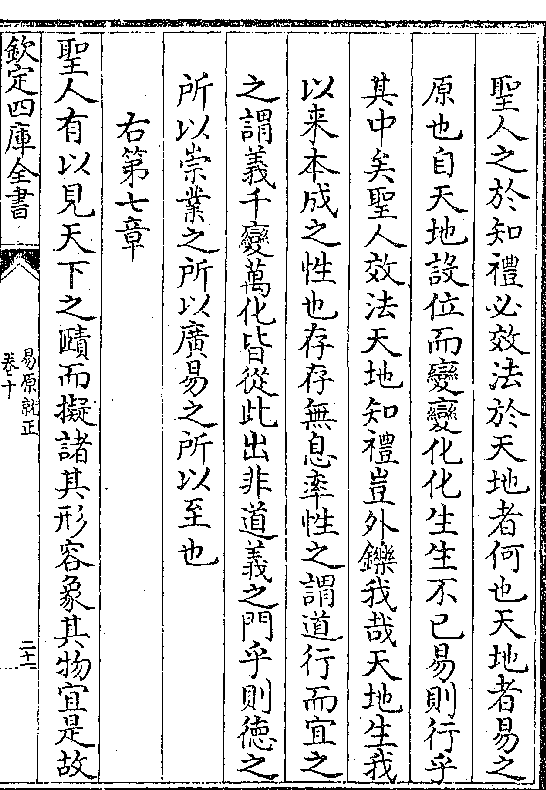 聖人之於知禮必效法於天地者何也天地者易之
原也自天地設位而變變化化生生不已易則行乎
其中矣聖人效法天地知禮豈外鑠我哉天地生我
以来本成之性也存存無息率性之謂道行而宜之
之謂義千變萬化皆從此出非道義之門乎則德之
所以崇業之所以廣易之所以至也
右第七章
聖人有以見天下之賾而擬諸其形容象其物宜是故
欽定四庫全書
易原就正
卷十
二十一